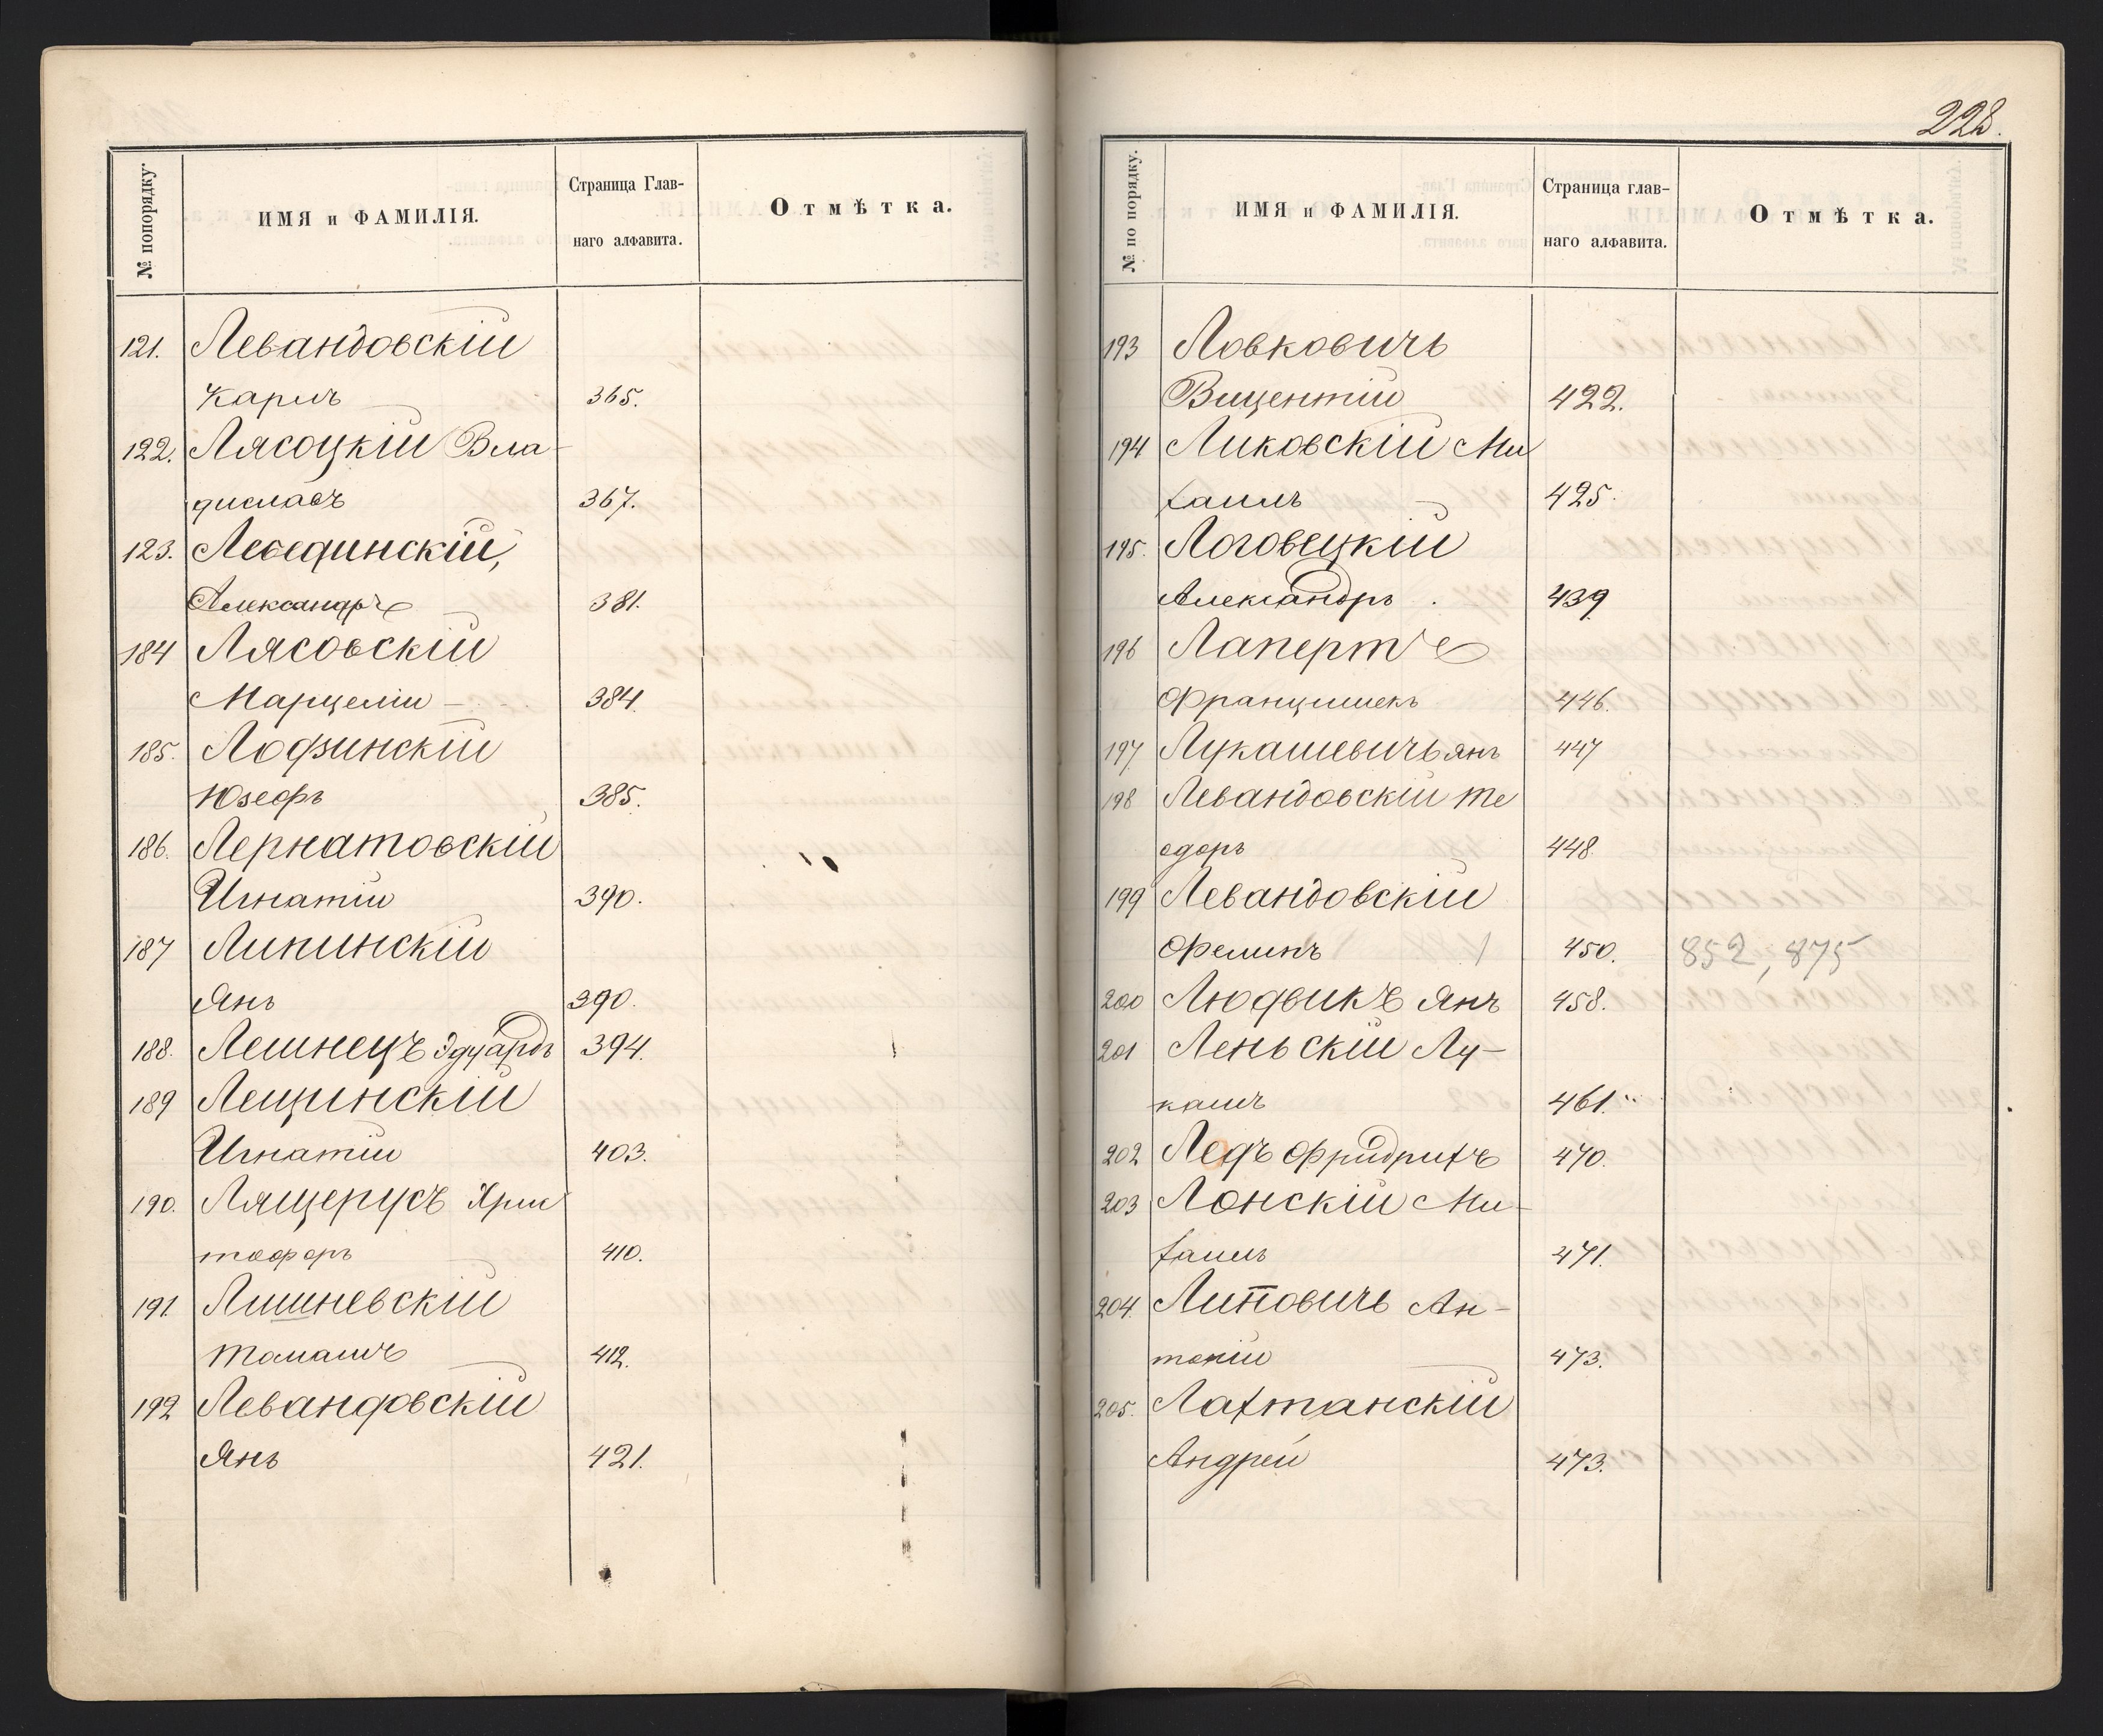 № попорядку.
ИМЯ и ФАМИЛІЯ.
Страница Глав-
наго алфавита.
Отмѣтка.
121. Левандовскій
Карлъ 365.
122. Лясоцкій Вла-
диславъ 367.
123. Лебединскій,
Александръ 381.
184 Лясовскій
Марцелій 384.
185. Лодзинскій
Юзефъ 385.
186. Лернатовскій
Игнатій 390.
187 Липинскій
Янъ 390.
188. Лешнецъ Эдуардъ 394.
189 Лещинскій
Игнатій 403.
190. Лящерусъ Хрис
тофоръ 410.
191. Лишневскій
Томашъ 412.
192 Левандовскій
Янъ 421.
228.
№ по порядку.
ИМЯ и ФАМИЛІЯ.
Страница глав-
наго алфавита.
Отмѣтка.
193 Ловковичъ
Вицентій 422.
194 Ликовскій Ми
хаилъ 425.
195. Логовецкій
Александръ 439
196 Лапертъ
Францишекъ 446.
197 Лукашевичъ Янъ 447
198 Левандовскій Те
одоръ 448.
199 Левандовскій
Феликъ 450. 852, 875
200 Людвикъ Янъ 458.
201 Леньскій Лу-
кашъ 461.
202 Ледъ Фридрихъ 470.
203 Лонскій Ми-
хаилъ 471.
204. Липовичъ Ан-
тоній 473.
205. Лахтанскій
Андрей 473.